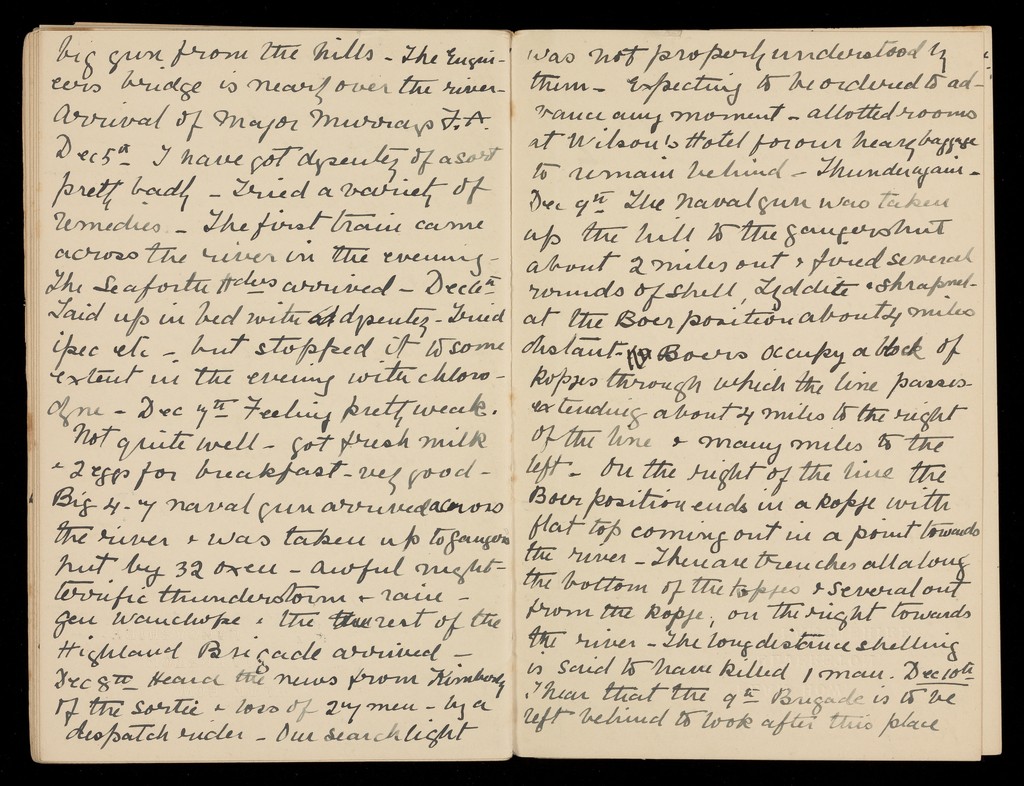 big gun from the hills - The Engin-
eers bridge is nearly over the river -
Arrival of Major Murrays F.A.
Dec 5th - I have got dysentery of a sort
pretty badly - Tried a variety of
remedies - The first train came
across the river in the evening -
The Seaforth Hdrs arrived - Dec 6th
Laid up in bed with dysentery - Tried
ipec etc - but stopped it to some
extent in the evening with chloro-
dyne - Dec 7th Feeling pretty weak.
Not quite well - got fresh milk
& 2 eggs for breakfast - very good -
Big 4-7 naval gun arrived across
the river & was taken up to gangers
hut by 32 oxen - awful night -
terrific thunderstorm & rain -
Gen Wauchope & the the rest of the
Highland Brigade arrived -
Dec 8th Heard the news from Kimberly
of the sortie & loss of 27 men - by a
despatch rider - Our searchlight
was not properly understood by
them - Expecting to be ordered to ad-
vance any moment - allotted rooms
at Wilson's Hotel for our heavy baggage
to remain behind - Thunder again -
Dec 9th The naval gun was taken
up the hill to the gangers hut
about 2 miles out & fired several
rounds of shell, Lyddite & shrapnel -
at the Boer position about 4 miles
distant - Boers occupy a block of
Kopjes through which the line passes -
extending about 4 miles to the right
of the line & many miles to the
left - On the right of the line the
Boer position ends in a Kopje with
flat top coming out in a point towards
the river - There are trenches all along
the bottom of the kopjes & several out
from the Kopje, on the right towards
the river - The long distance shelling
is said to have killed 1 man. Dec 10th
I hear that the 9th Brigade is to be
left behind to look after this place